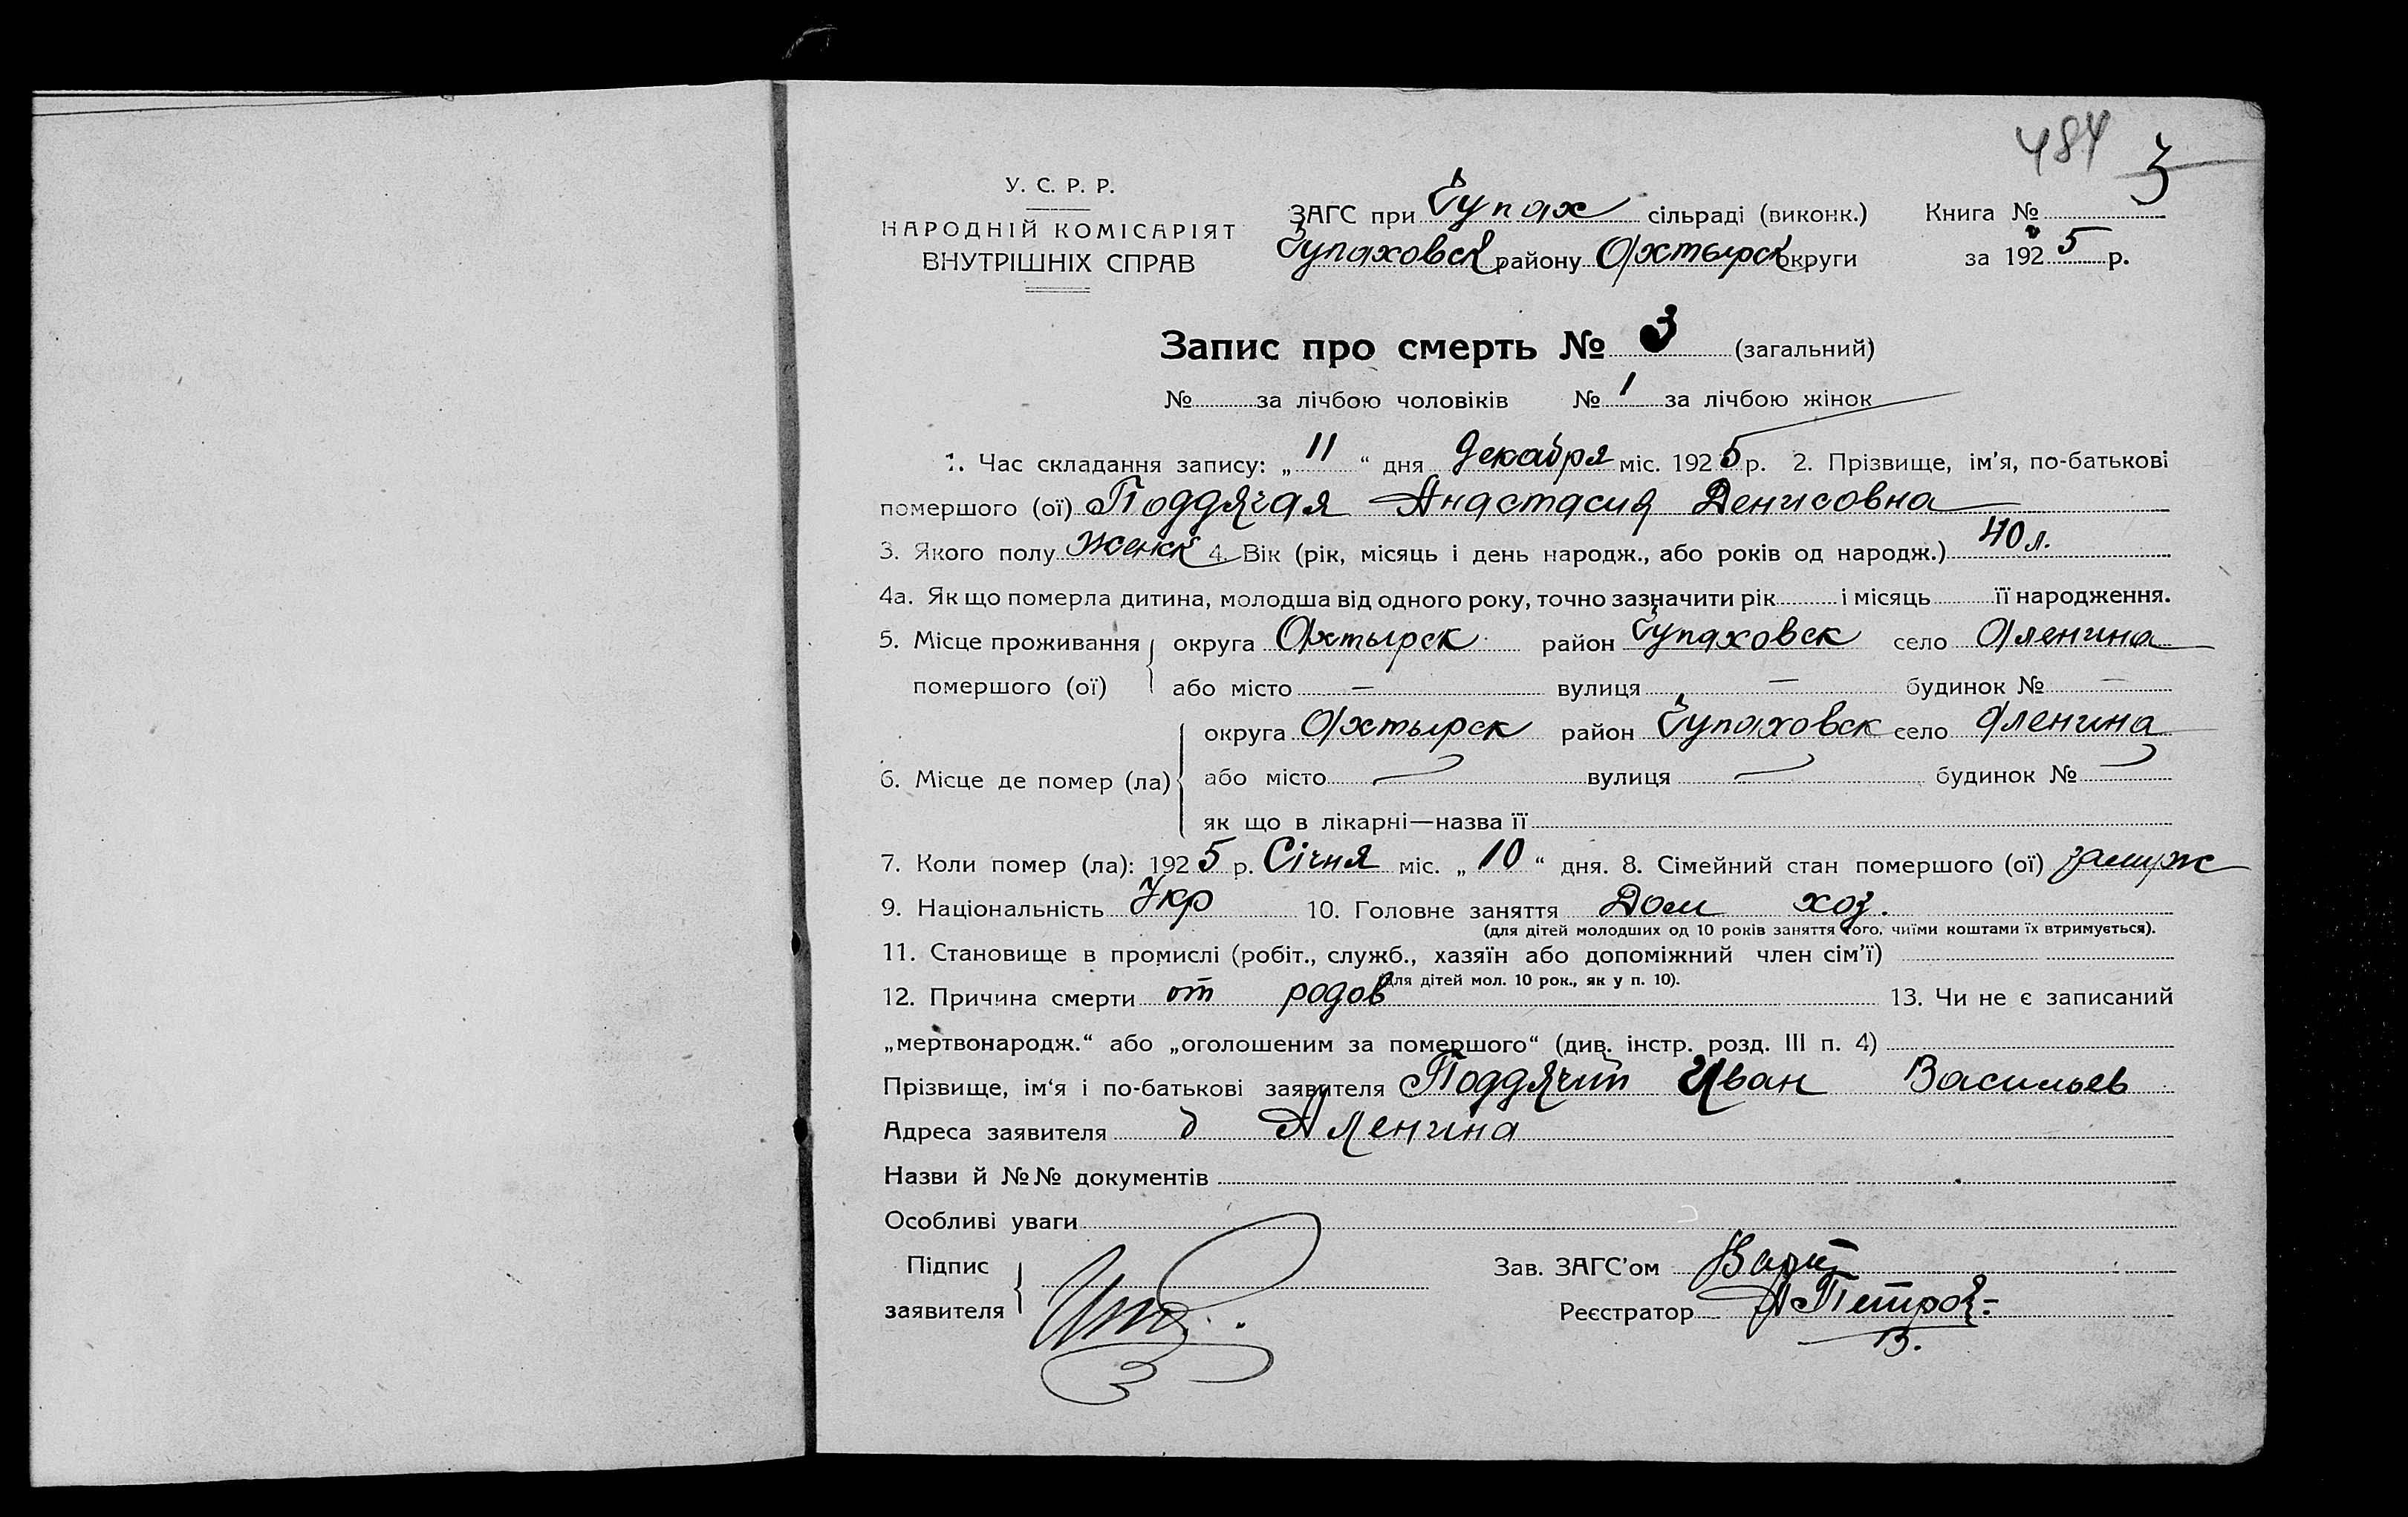 484 3
У. С. Р. Р.
НАРОДНІЙ КОМІСАРІЯТ
ВНУТРІШНІХ СПРАВ
ЗАГС при Чупах сільраді (виконк.) Книга №
Чупаховск району Охтырск округи за 1925 р.
Запис про смерть № 3 (загальний)
№ за лічбою чоловіків № 1 за лічбою жінок
1. Час складання запису: „ 11 “ дня Декабря міс. 1925 р. 2. Прізвище, ім’я, по-батькові
помершого (ої) Поддячая Анастасия Денисовна
3. Якого полу Женск 4. Вік (рік, місяць і день народж., або років од народж.) 40 л.
4а. Як що померла дитина, молодша від одного року, точно зазначити рік і місяць її народження.
5. Місце проживання округа Охтырск район Чупаховск село Аленина
помершого (ої) або місто — вулиця — будинок № —
округа Охтырск район Чупаховск село Аленина
6. Місце де помер (ла) або місто — вулиця — будинок № —
як що в лікарні—назва її
7. Коли помер (ла): 1925 р. Січня міс. „ 10 “ дня. 8. Сімейний стан помершого (ої) замуж
9. Національність Укр 10. Головне заняття Дом хоз.
(для дітей молодших од 10 років заняття того, чиїми коштами їх втримується).
11. Становище в промислі (робіт., служб., хазяїн або допоміжний член сім’ї)
(для дітей мол. 10 рок., як у п. 10).
12. Причина смерти от родов 13. Чи не є записаний
„мертвонародж.“ або „оголошеним за помершого“ (див. інстр. розд. III п. 4)
Прізвище, ім‘я і по-батькові заявителя Поддячий Иван Васильев
Адреса заявителя д Аленина
Назви й №№ документів
Особливі уваги
Підпис Зав. ЗАГС’ом
заявителя Реєстратор А Петров